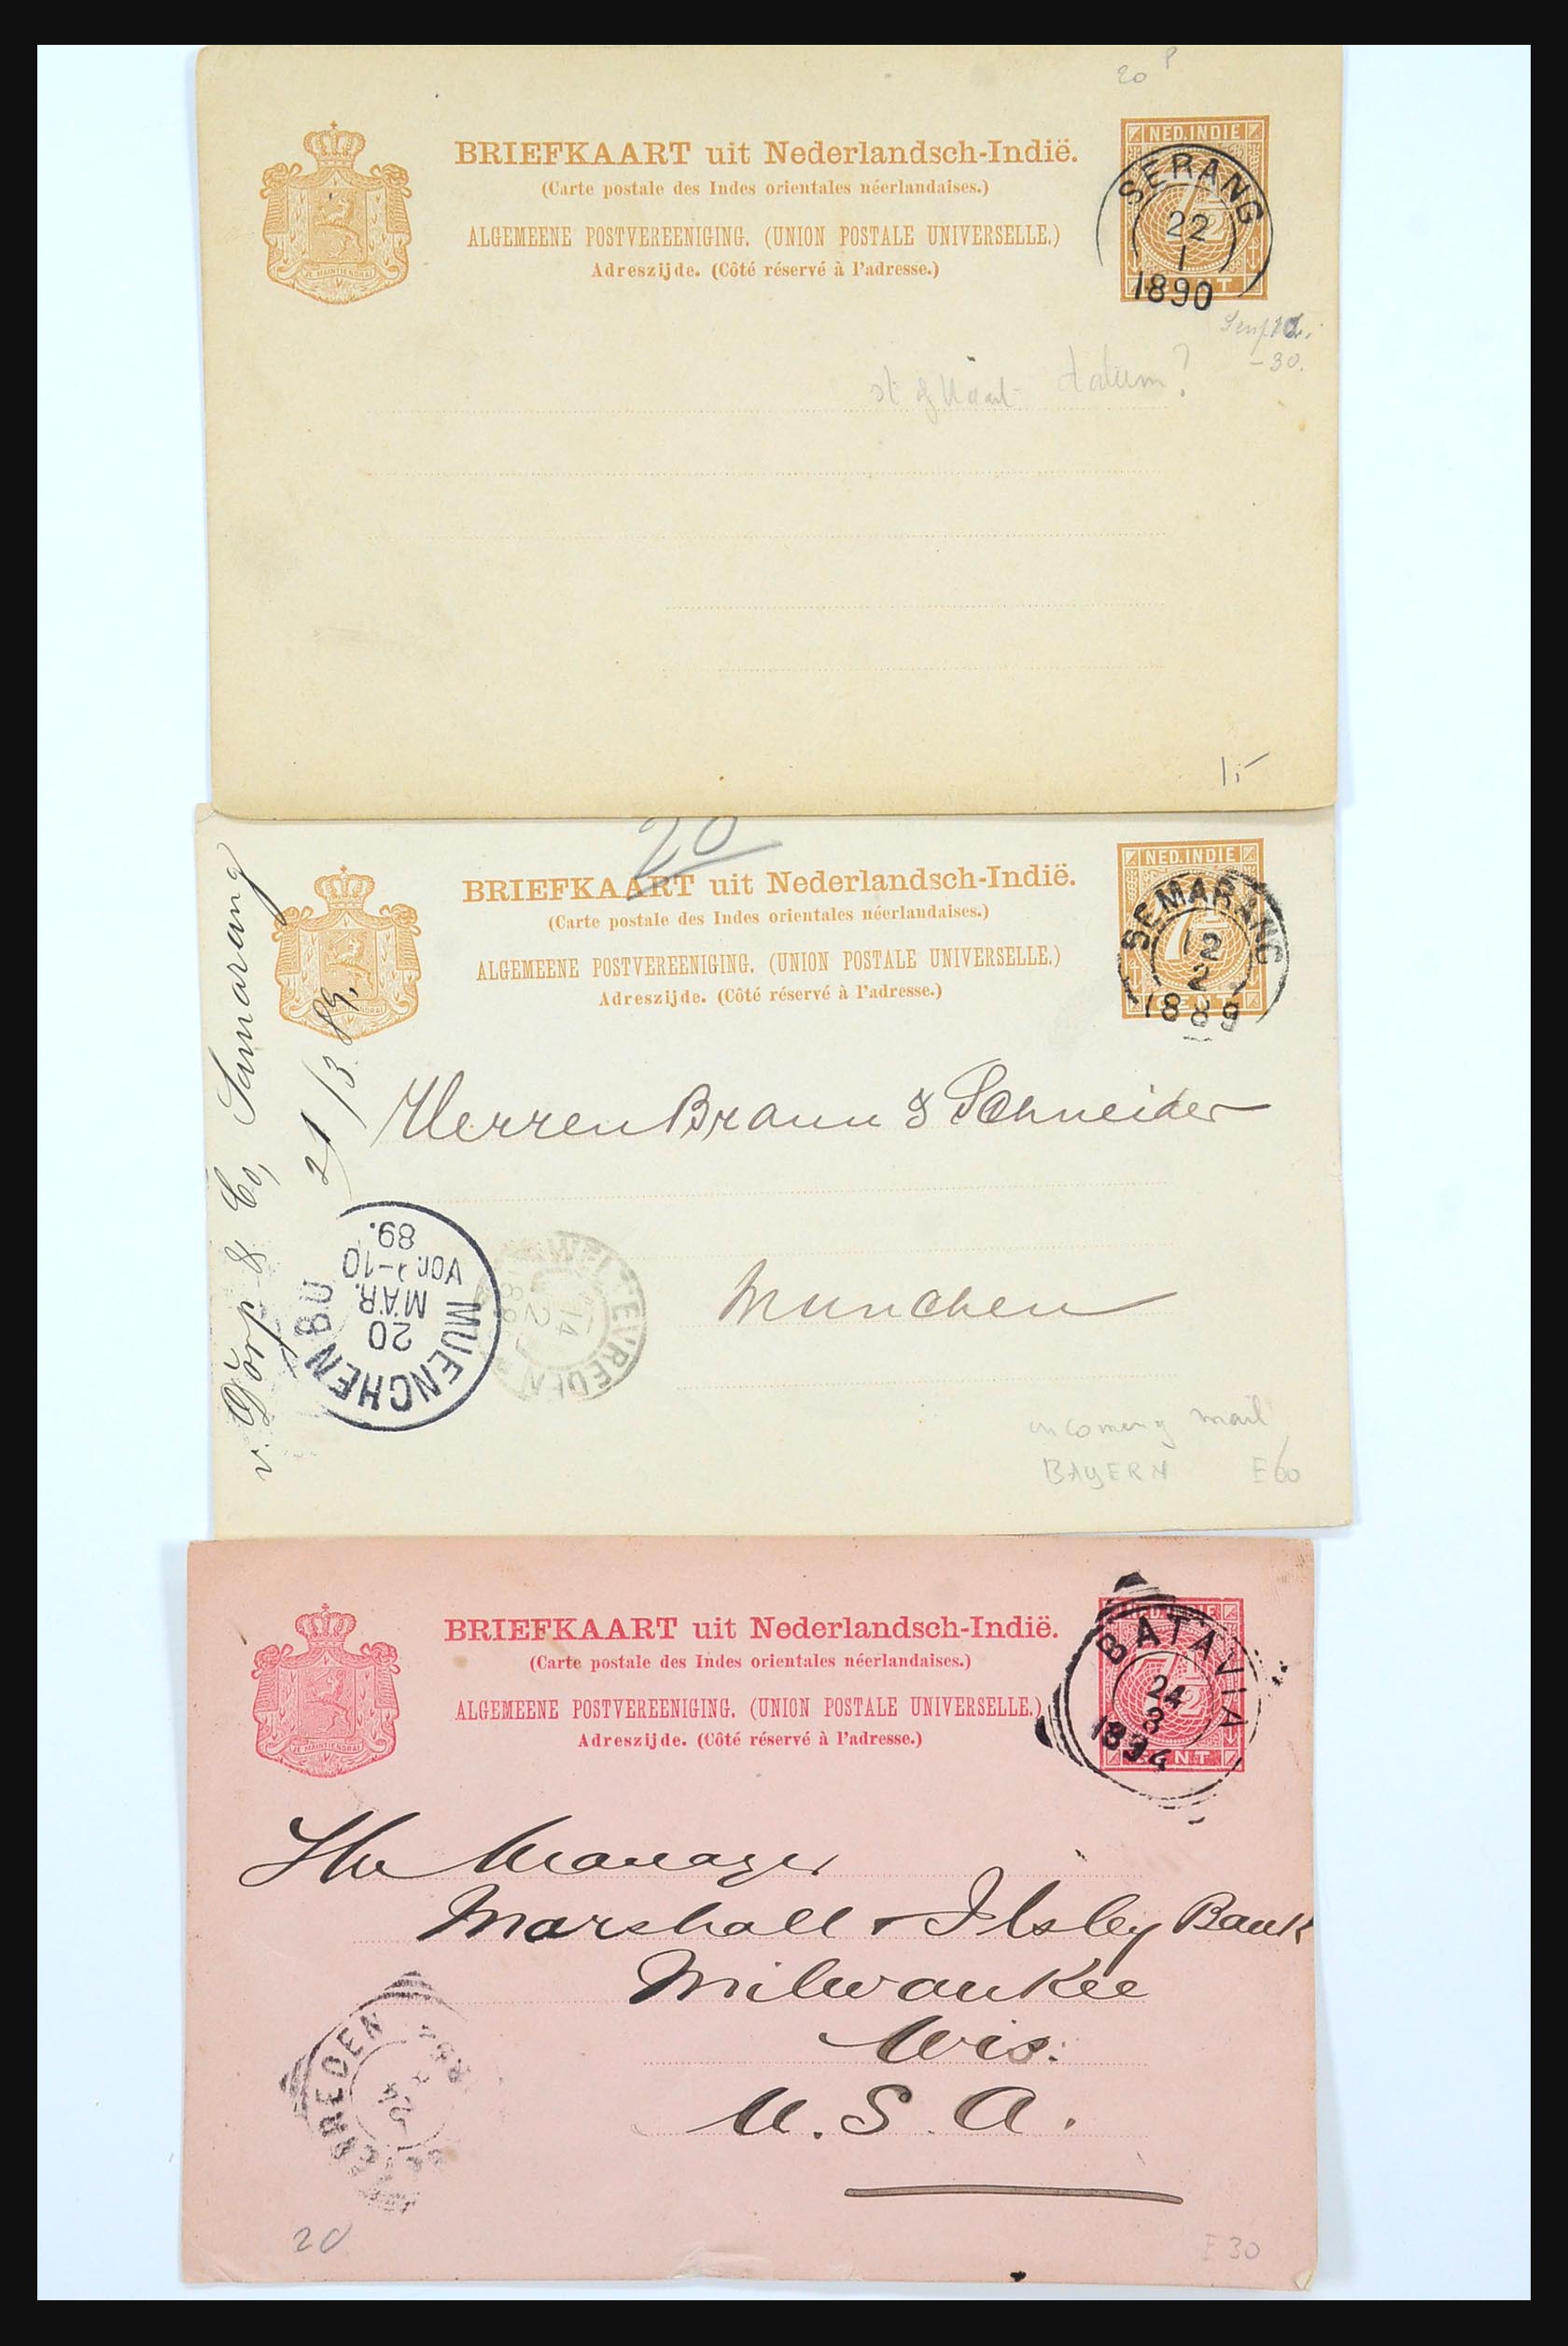 20
BRIEFKAART uit Nederlandsch-Indië.
(Carte postale des Indes orientales néerlandaises.)
ALGEMEENE POSTVEREENIGING. (UNION POSTALE UNIVERSELLE.)
Adreszijde. (Côté réservé à l'adresse.)
JE MAINTIENDRAI
NED.INDIE
CENT
SERANG
22
1
1890
-30.
datum?
20
BRIEFKAART uit Nederlandsch-Indië.
(Carte postale des Indes orientales néerlandaises.)
ALGEMEENE POSTVEREENIGING. (UNION POSTALE UNIVERSELLE.)
Adreszijde. (Côté réservé à l'adresse.)
JE MAINTIENDRAI
NED.INDIE
7½
CENT
SEMARANG
12
2
1889
v. Dorp & Co, Samarang
21/3 89.
Herren Braun & Schneider
Munchen
MUENCHEN
20
MÄR.
89.
WELTEVREDEN
14
2
incoming mail
BAYERN E60
BRIEFKAART uit Nederlandsch-Indië.
(Carte postale des Indes orientales néerlandaises.)
ALGEMEENE POSTVEREENIGING. (UNION POSTALE UNIVERSELLE.)
Adreszijde. (Côté réservé à l'adresse.)
JE MAINTIENDRAI
NED.INDIE
7½
CENT
BATAVIA
24
8
1894
The Manager
Marshall & Ilsley Bank
Milwaukee
Wis:
U. S. A.
20
E 30